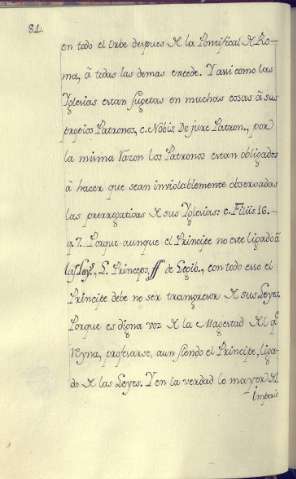 81.
en todo el Orbe despues de la Pontifical de Ro-
ma, â todas las demas excede. Y asi como las
Yglesias estan sugetas en muchas cosas â sus
propios Patronos, c. Nobis De jure Patron., por
la misma razon los Patronos estan obligados
â hacer que sean inviolablemente observadas
las prerrogativas de sus Yglesias: c. Filiis 16.
q. 7. Porque aunque el Principe no esté ligado â
las Leyes, L. Princeps, ff de Legib., con todo eso el
Principe debe no ser transgresor de sus Leyes.
Porque es digna voz de la Magestad del que
reyna, profesarse, aun siendo el Principe, liga-
do de las Leyes. Y en la verdad lo mayor del
Imperio